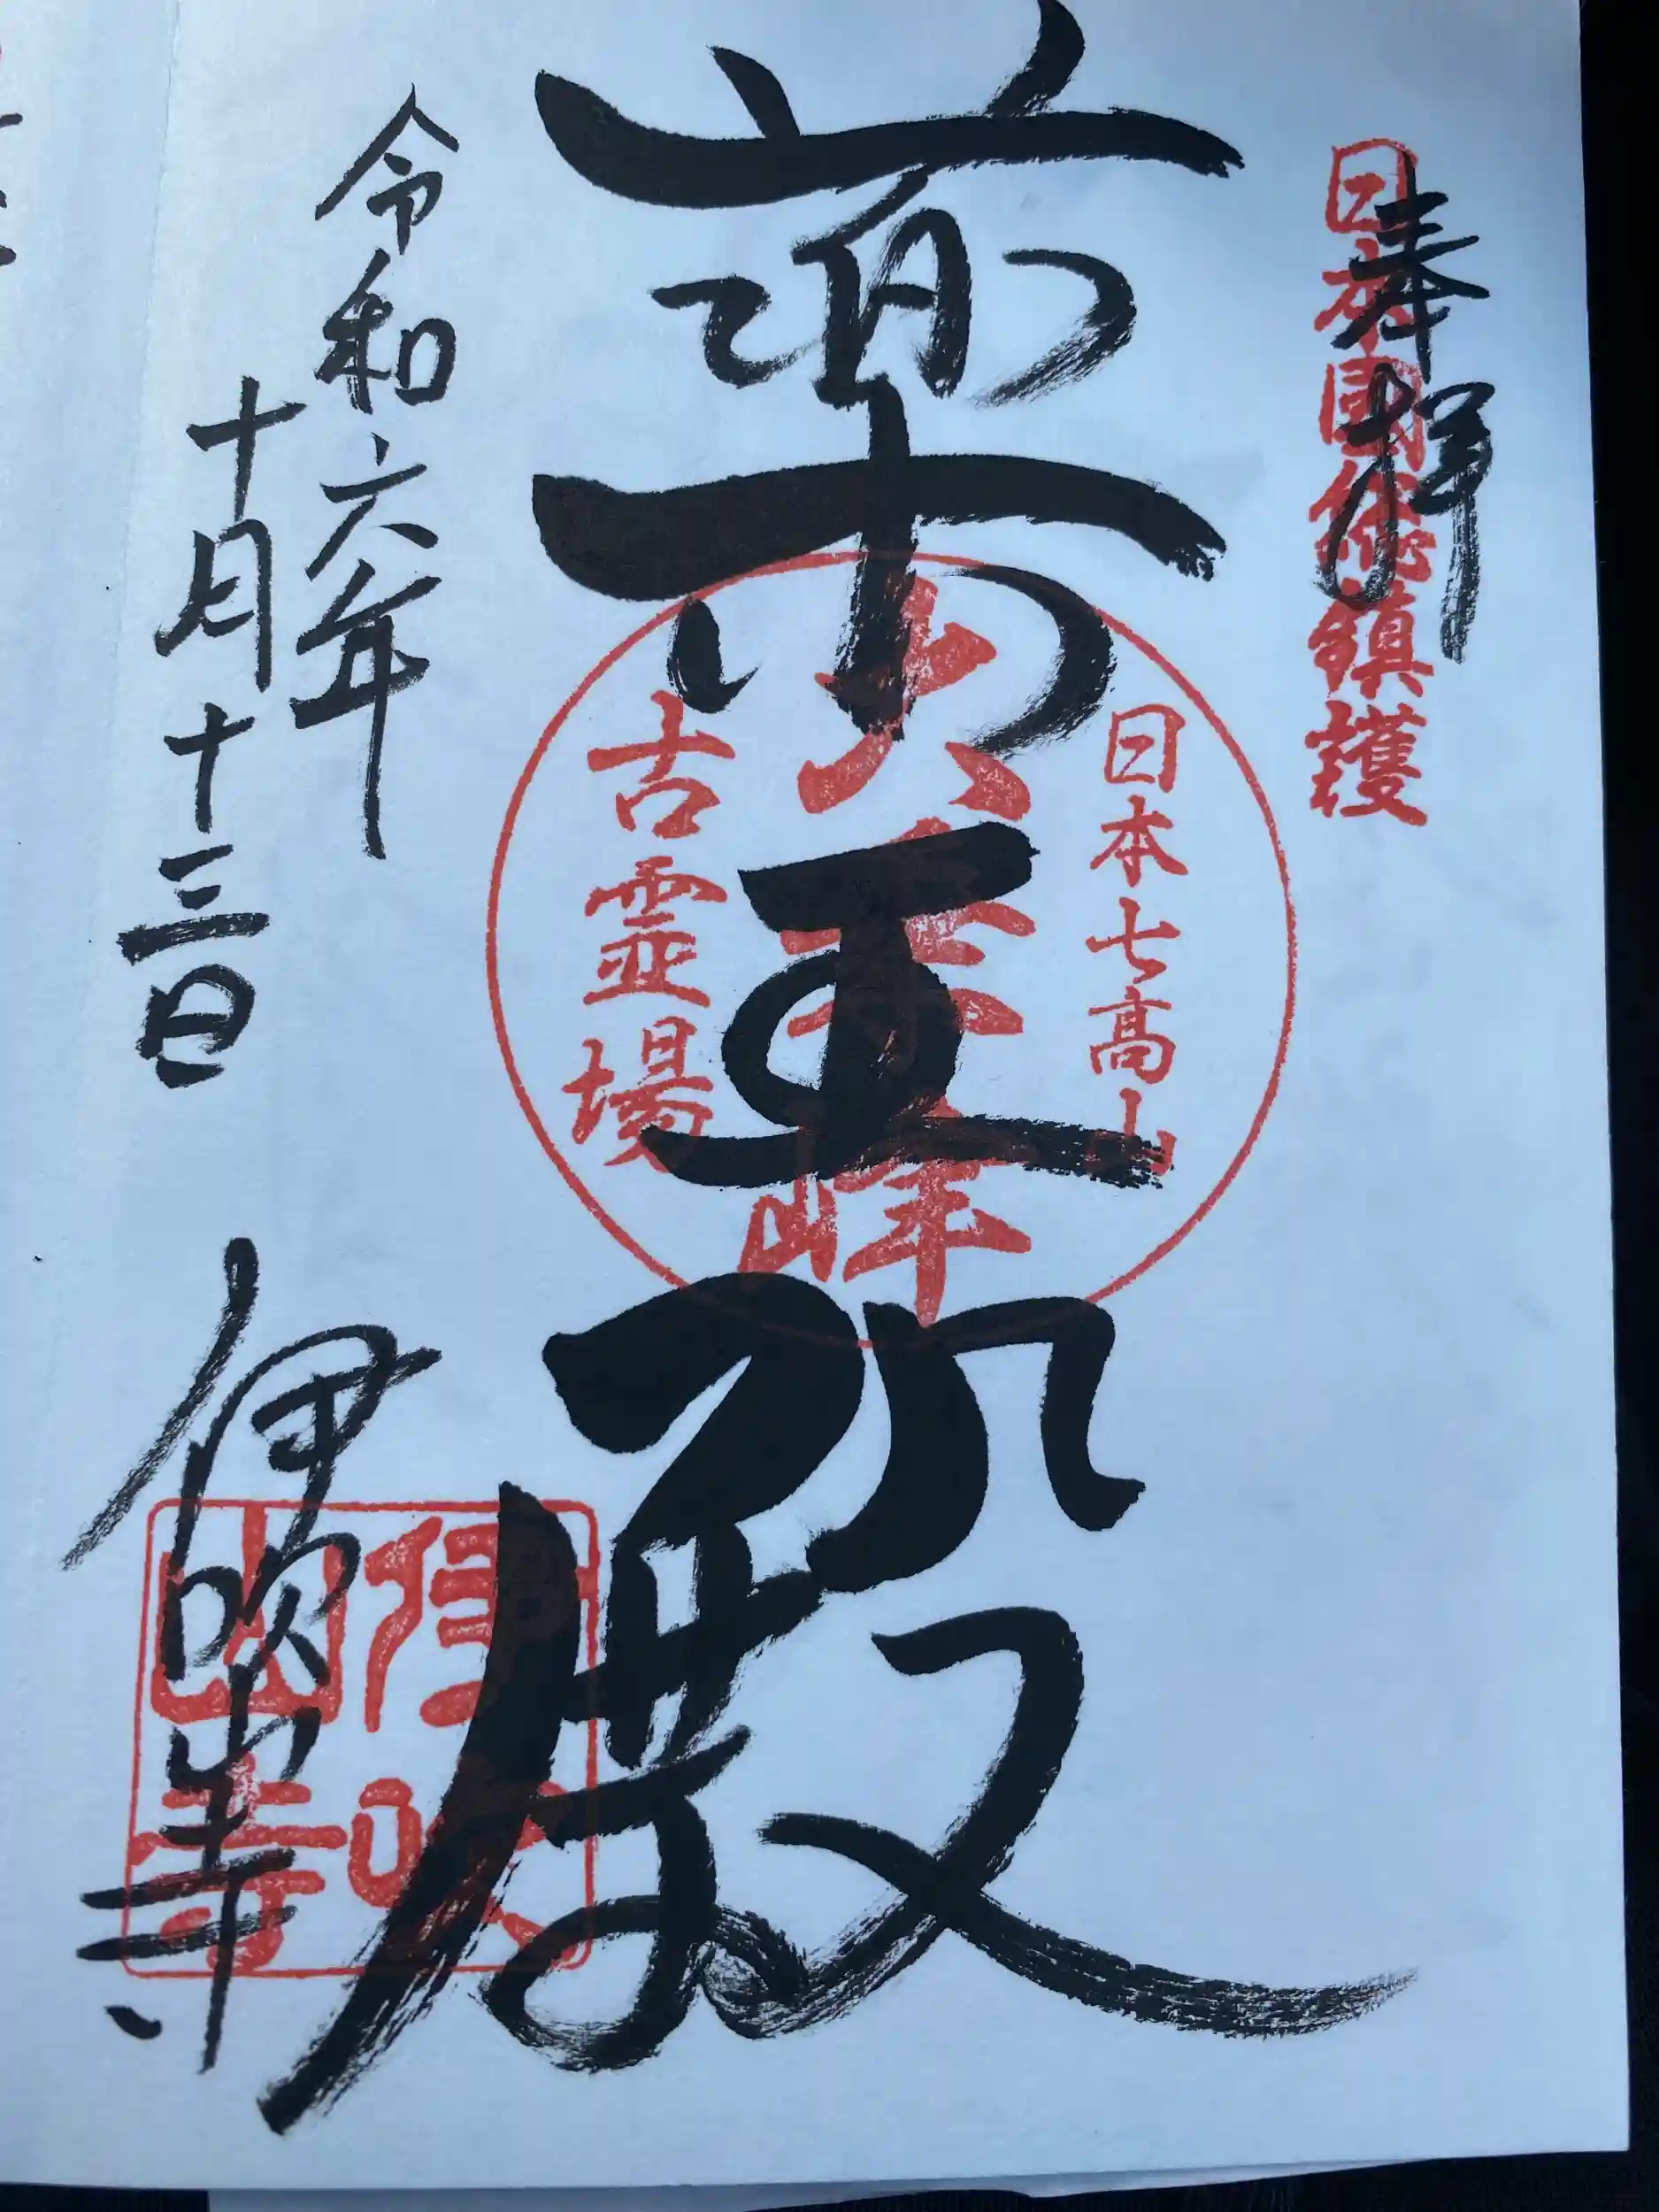 奉拝
日本國總鎮護
薬王殿
日本七高山
古霊場
令和六年
十月十三日
伊吹山寺
伊吹山寺